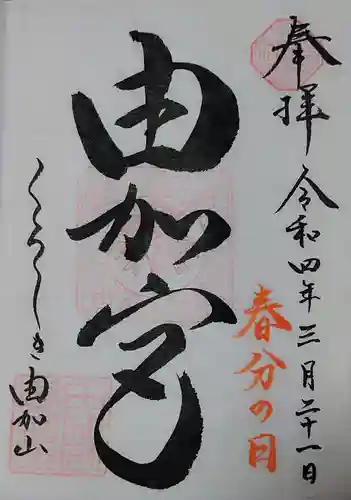 奉拝
令和四年三月二十一日
春分の日
由加宮
くらしき由加山